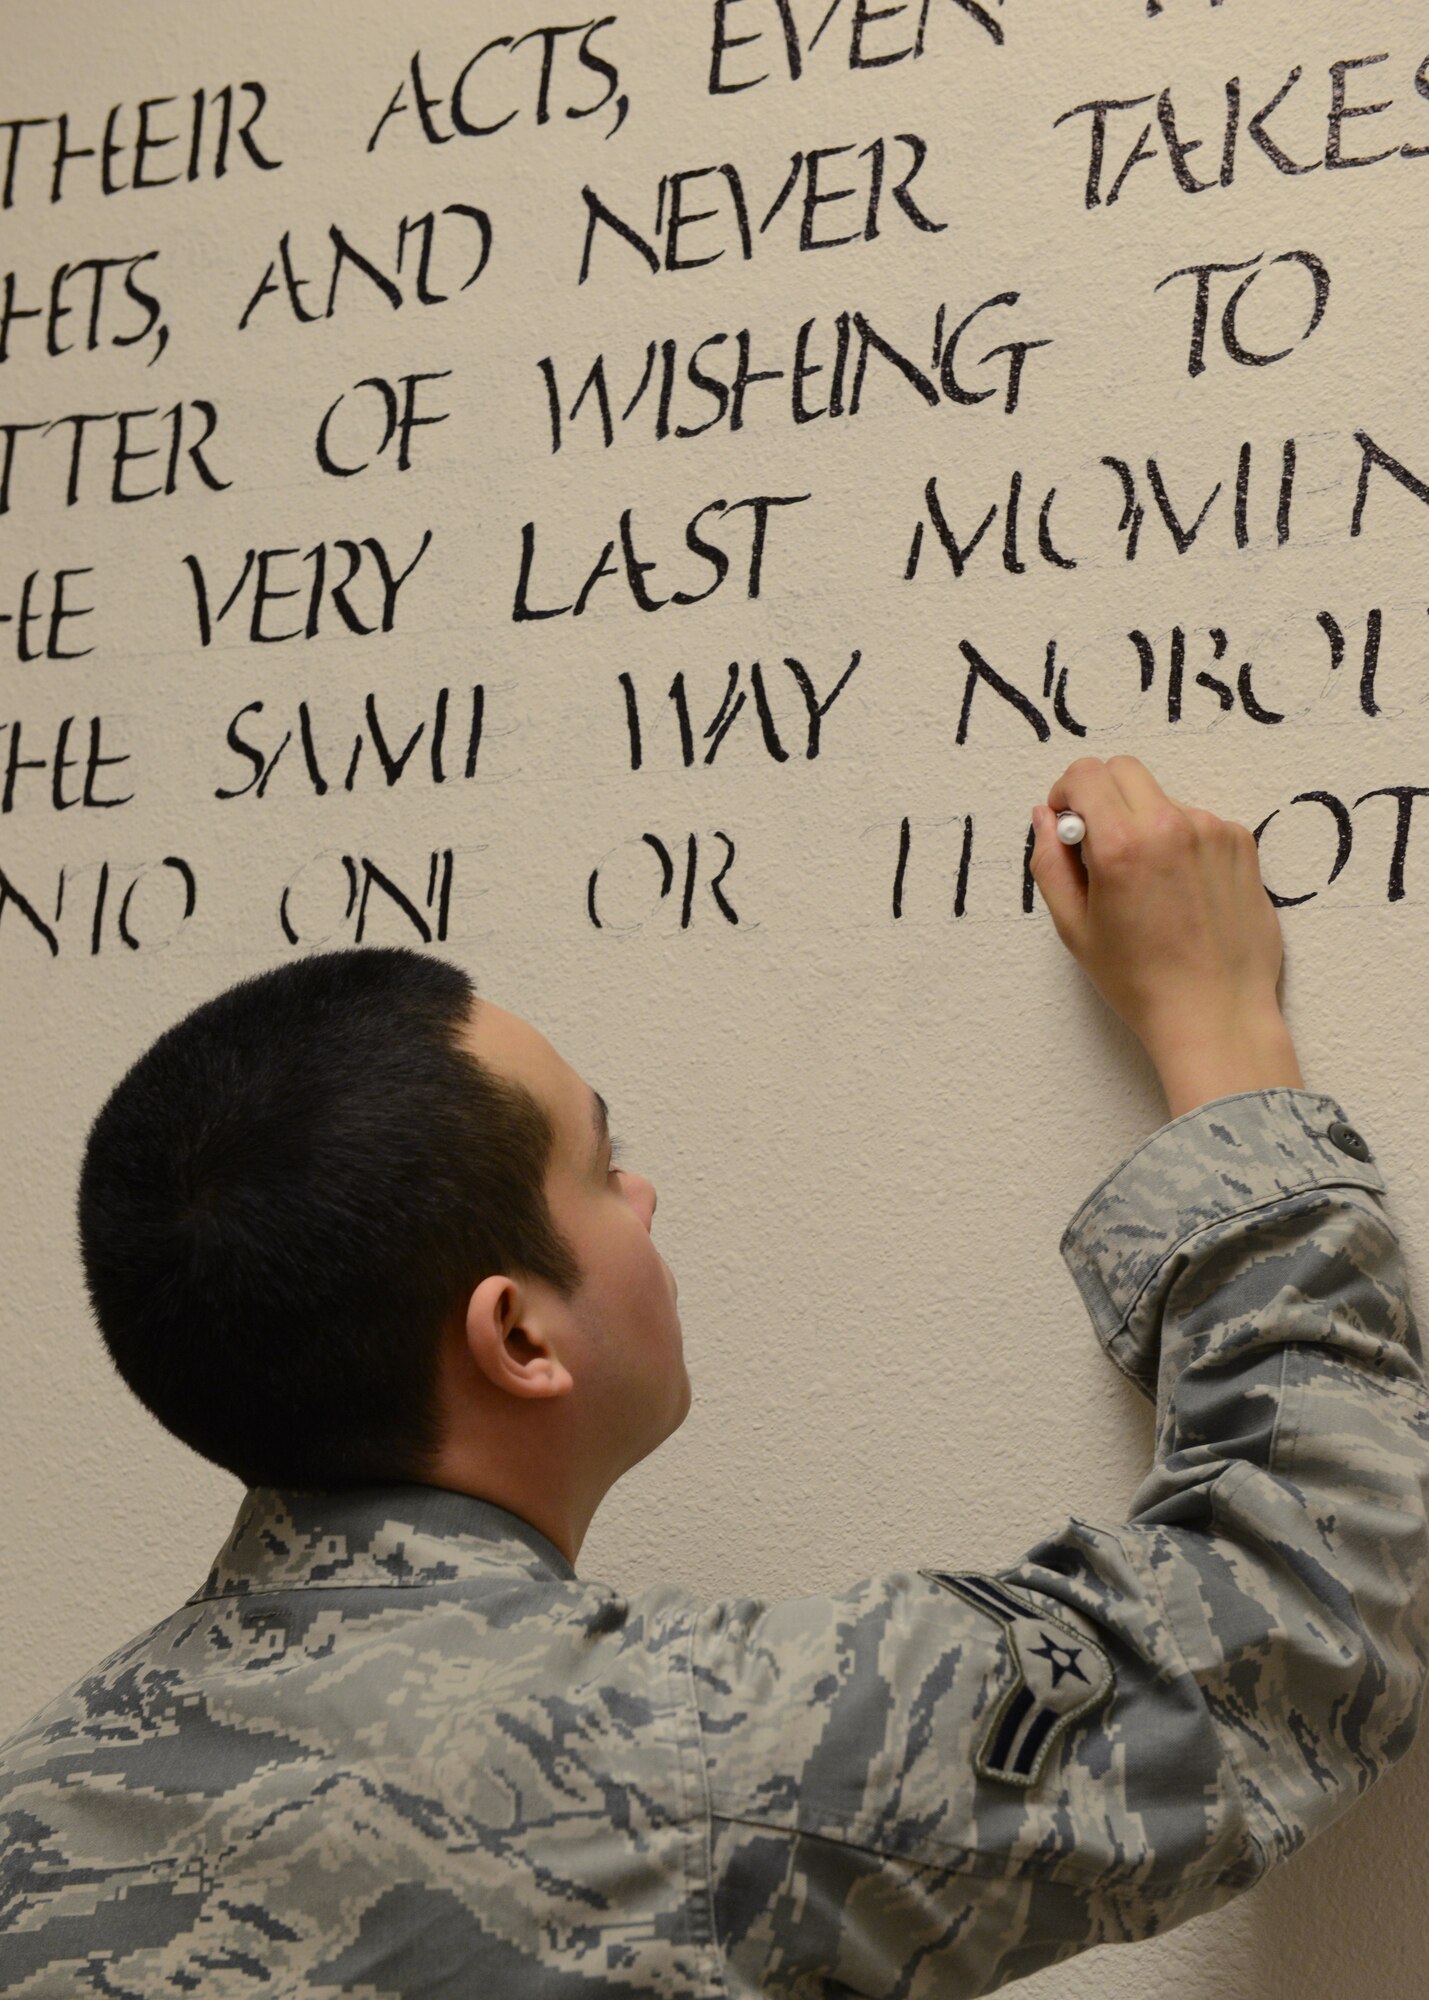 THEIR ACTS, EVEN
HTS, AND NEVER TAKES
TTER OF WISHING TO
HE VERY LAST MOMEN
THE SAME WAY NOBODY
NTO ONE OR THE OT